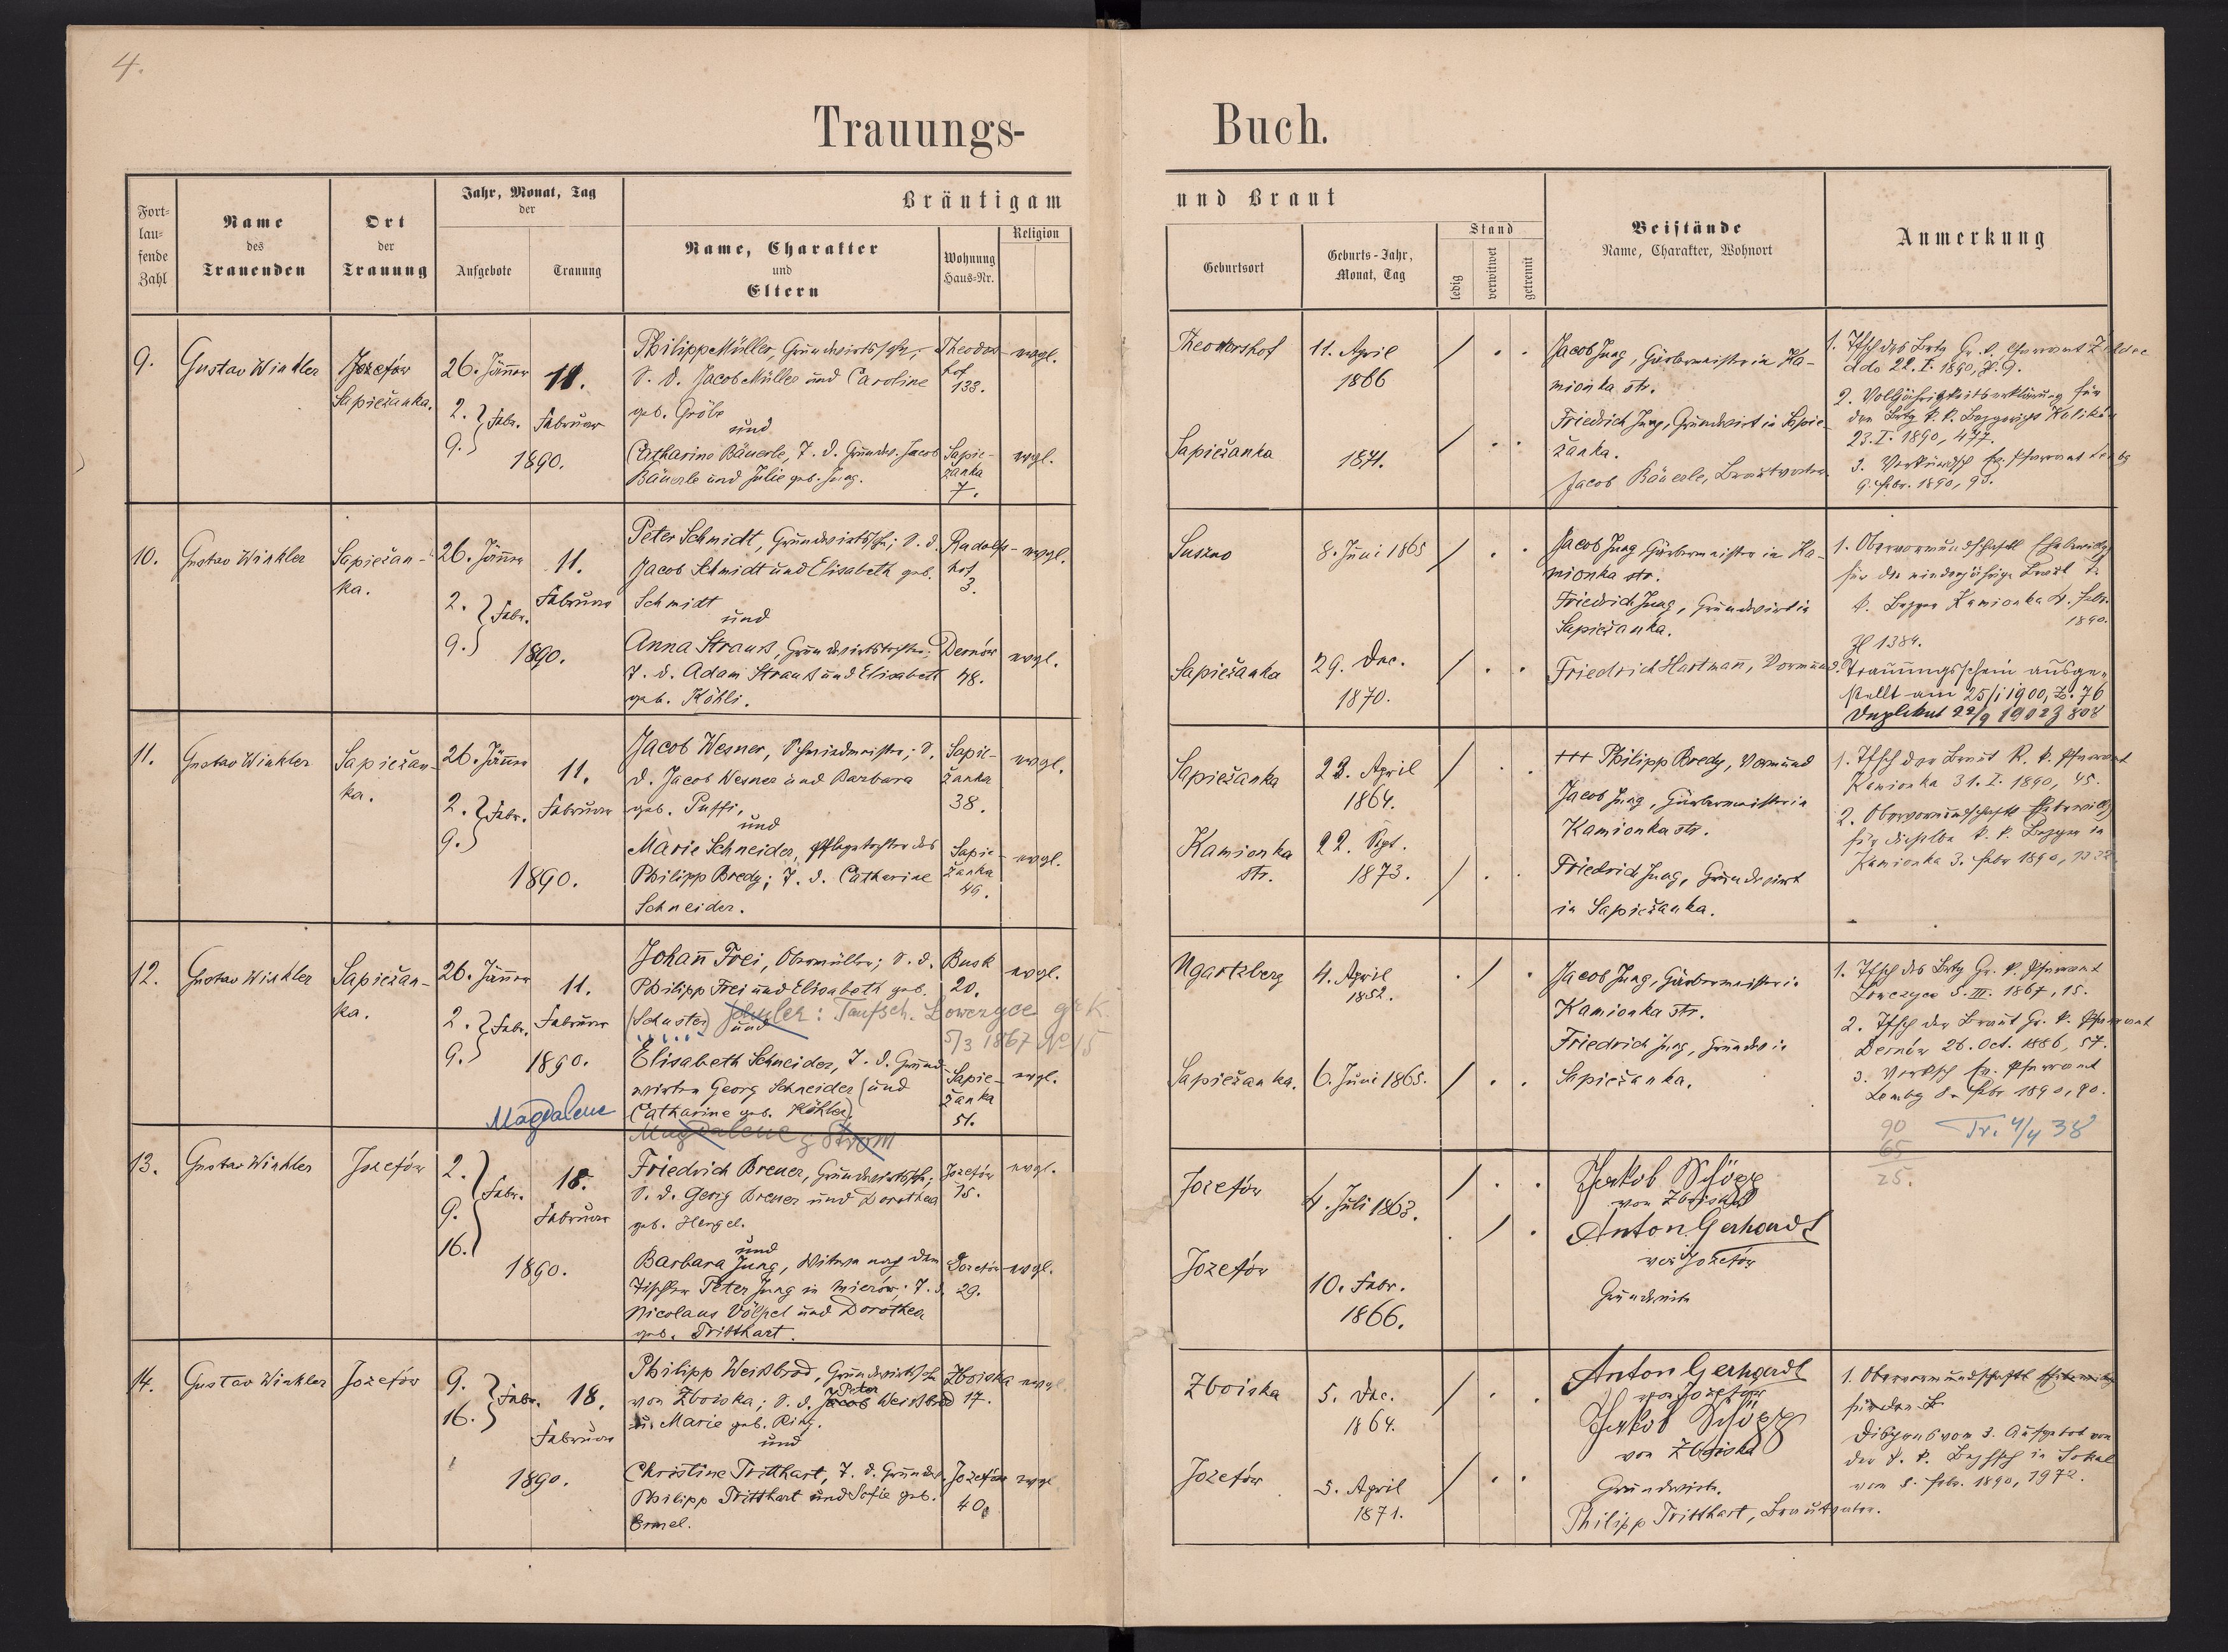 4.
Trauungs-
Buch.
Fort-
lau-
fende
Zahl
Name
des
Trauenden
Ort
der
Trauung
Jahr, Monat, Tag
der
Aufgebote
Trauung
Bräutigam
Name, Charakter
und
Eltern
Wohnung
Haus-Nr.
Religion
und Braut
Geburtsort
Geburts-Jahr,
Monat, Tag
Stand
ledig
verwitwet
getrennt
Beistände
Name, Charakter, Wohnort
Anmerkung
9.
Gustav Winkler
Jozefów
Sapieżanka.
26. Jänner
2.
9.
Febr.
11.
Februar
1890.
Philipp Müller, Grundwirtssohn,
S. d. Jacob Müller und Caroline
geb. Gröbe
und
Catharina Bäuerle, T. d. Grundw. Jacob
Bäuerle und Julie geb. Jung.
Theodors-
hof
133.
Sapie-
żanka
7.
evgl.
evgl.
Theodorshof
11. April
1866
Sapieżanka
1871.
Jacob Jung, Gärbermeister in Ka-
mionka str.
Friedrich Jung, Grundwirt in Sapie-
żanka.
Jacob Bäuerle, Brautvater
ddo 22. I. 1890, Z. 9.
2. Volljährigkeitserklärung für
23. I. 1890, 477.
9. Febr. 1890, 93.
10.
Gustav Winkler
Sapieżan-
ka.
26. Jänner
2.
9.
Febr.
11.
Februar
1890.
Peter Schmidt, Grundwirtssohn; S. d.
Jacob Schmidt und Elisabeth geb.
Schmidt
und
Anna Strauss, Grundwirtstochter;
T. d. Adam Strauss und Elisabeth
geb. Köhli.
Rudolfs-
hof
3.
Dernów
48.
evgl.
evgl.
Suszno
8. Juni 1865
Sapieżanka
29. Dec.
1870.
Jacob Jung Gärbermeister in Ka-
mionka str.
Friedrich Jung, Grundwirt in
Sapieżanka.
Friedrich Hartmann, Vormund.
für die minderjährige Braut k.
k. Bezger Kamionka 4. Febr.
1890.
Zl 1384.
Trauungsschein ausge-
stellt am 25/1 1900, Z. 76
Duplikat 22/9 1902 Z 808
11.
Gustav Winkler
Sapieżan-
ka.
26. Jänner
2.
9.
Febr.
11.
Februar
1890.
Jacob Wesner, Schmiedmeister; S.
d. Jacob Wesner und Barbara
geb. Puffi,
und
Marie Schneider, Pflegetochter des
Philipp Bredy; T. d. Catharine
Schneider.
Sapie-
żanka
38.
Sapie-
żanka
49.
evgl.
evgl.
Sapieżanka
22. April
1864.
Kamionka
str.
22. Sept.
1873.
+++ Philipp Bredy, Vormund
Jacob Jung, Gärbermeister in
Kamionka str.
Friedrich Jung, Grundwirt
in Sapieżanka.
1. Tfsch der Braut R. k. Pfarramt
Kamionka 31. I. 1890, 45.
für dieselbe k. k. Bezger in
Kamionka 3. Febr 1890,
12.
Gustav Winkler
Sapieżan-
ka.
26. Jänner
2.
9.
Febr.
11.
Februar
1890.
Magdalene
Johann Frei, Obermüller; S. d.
Philipp Frei und Elisabeth geb.
(Schuster) Schuler: Taufsch. Lowczyce gr K.
und
5/3 1867 No 15
Elisabeth Schneider, T. d. Grund-
wirten Georg Schneider (und
Catharine geb. Köhler)
Magdalene g Strom
Busk
20.
Sapie-
żanka
51.
evgl.
evgl.
Ngartzberg
4. April
1852.
Sapieżanka.
6. Juni 1865.
Jacob Jung, Gärbermeister in
Kamionka str.
Friedrich Jung, Grundw in
Sapieżanka.
Lowczyce 5. III. 1867, 15.
2. Tfsch der Braut Gr. k. Pfarramt
Dernów 26. Oct. 1886, 57.
3. Verksch ev. Pfarramt
Lembg 8. Febr 1890, 90.
90
65
25.
Tr. 4/4 38
13.
Gustav Winkler
Jozefów
2.
9.
16.
Febr.
18.
Februar
1890.
Friedrich Brener, Grundwirtssohn;
S. d. Georg Brener und Dorothea
geb. Hergel.
und
Barbara Jung, Witwe nach dem
Tischler Peter Jung in Mierów; T. d.
Nicolaus Völpel und Dorothea
geb. Tritthart.
Jozefów
15.
Jozefów
29.
evgl.
evgl.
Jozefów
4. Juli 1863.
Jozefów
10. Febr.
1866.
Jakob Schöpp
von Zboiska
Anton Gerhardt
von Jozefów
Grundwirte
14.
Gustav Winkler
Jozefów
9.
16.
Febr.
18.
Februar
1890.
Philipp Weissbrod, Grundwirtssohn
von Zboiska; S. d. Jacob Peter Weissbrod
u. Marie geb. Ring.
und
Christine Tritthart, T. d. Grundw.
Philipp Tritthart und Sofie geb.
Ermel.
Zboiska
17.
Jozefów
40.
evgl.
evgl
Zboiska
5. Dec.
1864.
Jozefów
5. April
1871.
Anton Gerhardt
von Jozefów
Jakob Schöpp
von Zboiska
Grundwirte.
Philipp Tritthart, Brautvater.
für den B
Dispens vom 3. Aufgebot von
der k. k. Bezhsch in Sokal
vom 8. Febr. 1890, 1972.